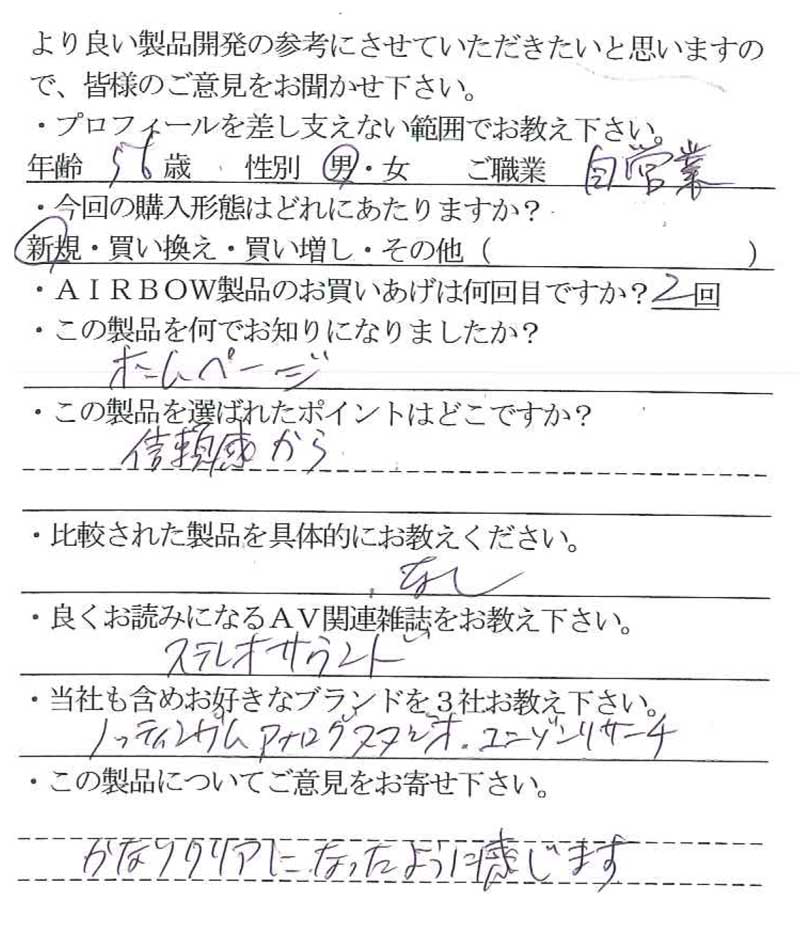 より良い製品開発の参考にさせていただきたいと思いますの
で、皆様のご意見をお聞かせ下さい。
・プロフィールを差し支えない範囲でお教え下さい。
年齢 56歳 性別 男・女 ご職業 自営業
・今回の購入形態はどれにあたりますか？
新規・買い換え・買い増し・その他（ ）
・ＡＩＲＢＯＷ製品のお買いあげは何回目ですか？2回
・この製品を何でお知りになりましたか？
ホームページ
・この製品を選ばれたポイントはどこですか？
信頼感から
・比較された製品を具体的にお教えください。
なし
・良くお読みになるＡＶ関連雑誌をお教え下さい。
ステレオサウンド
・当社も含めお好きなブランドを３社お教え下さい。
ノッティンガムアナログスタジオ．ユニゾンリサーチ
・この製品についてご意見をお寄せ下さい。
かなりクリアになったように感じます